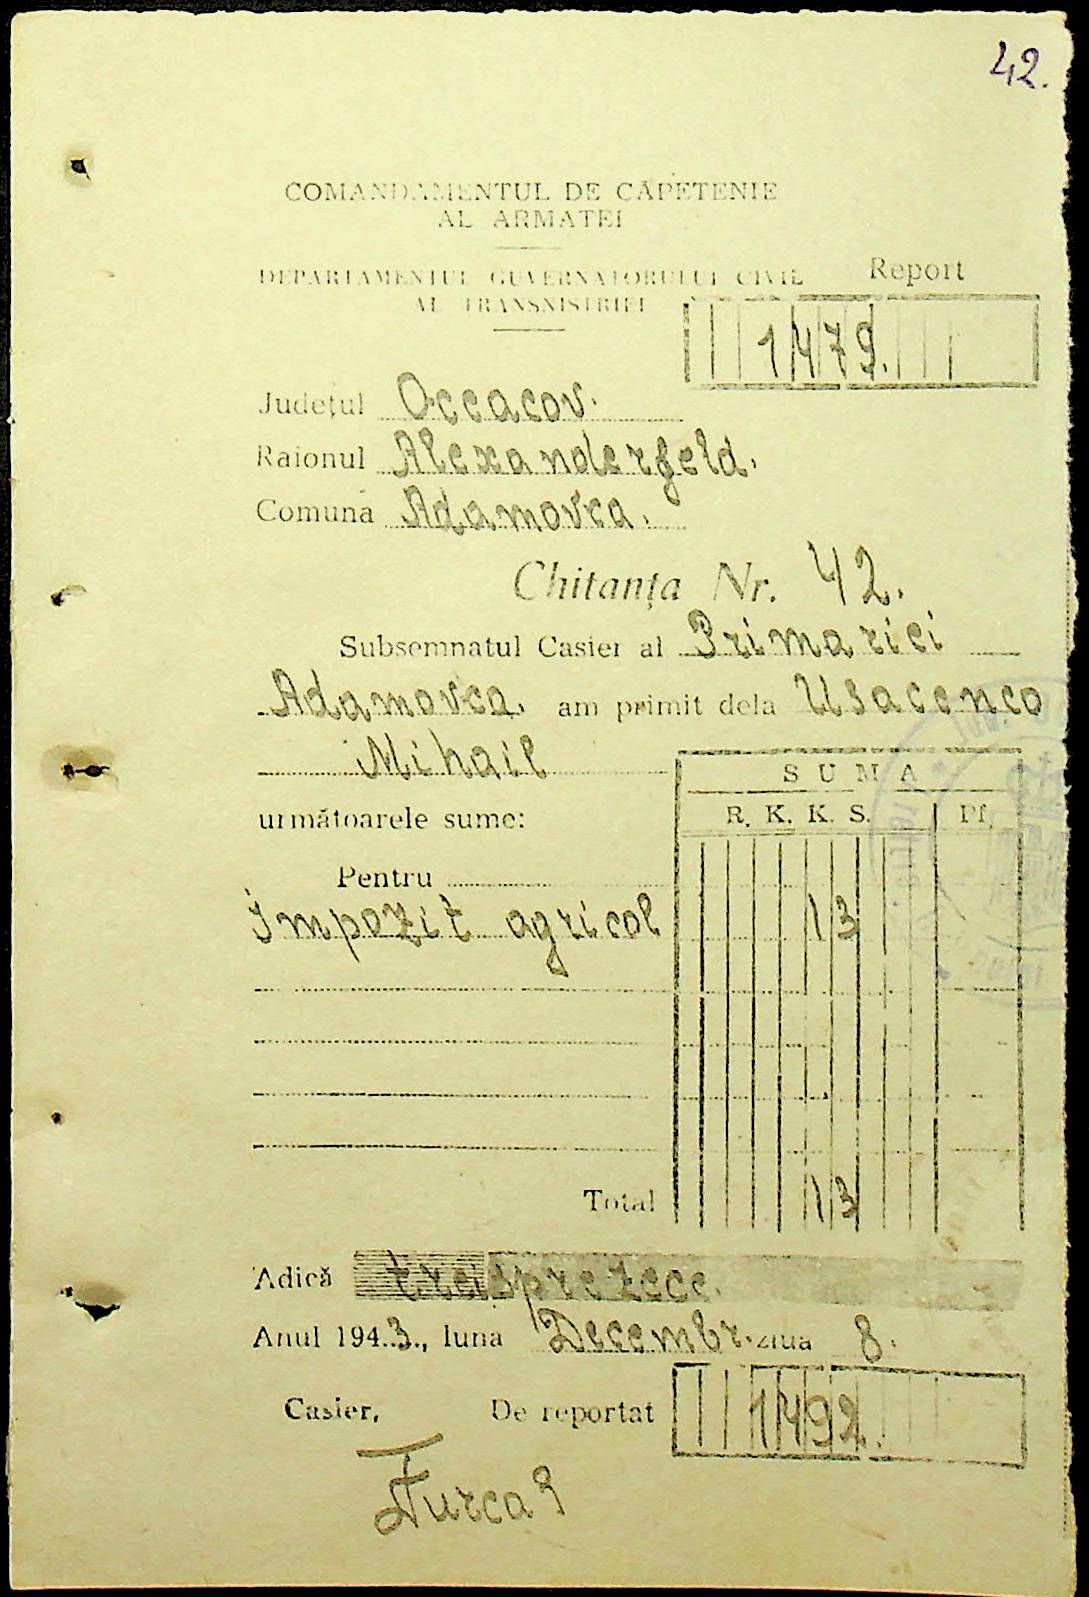 42.
COMANDAMENTUL DE CĂPETENIE
AL ARMATEI
DEPARTAMENTUL GUVERNATORULUI CIVIL
AL TRANSNISTRIEI
Report
1479.
Județul Occacov.
Raionul Alexanderfeld.
Comuna Adamovca.
Chitanța Nr. 42.
Subsemnatul Casier al Primariei
Adamovca, am primit dela Usacenco
Mihail
SUMA
următoarele sume: R. K. K. S. Pf.
Pentru
Impozit agricol 13
Total 13
Adică treisprezece.
Anul 1943., luna Decembr. ziua 8.
Casier, De reportat 1492.